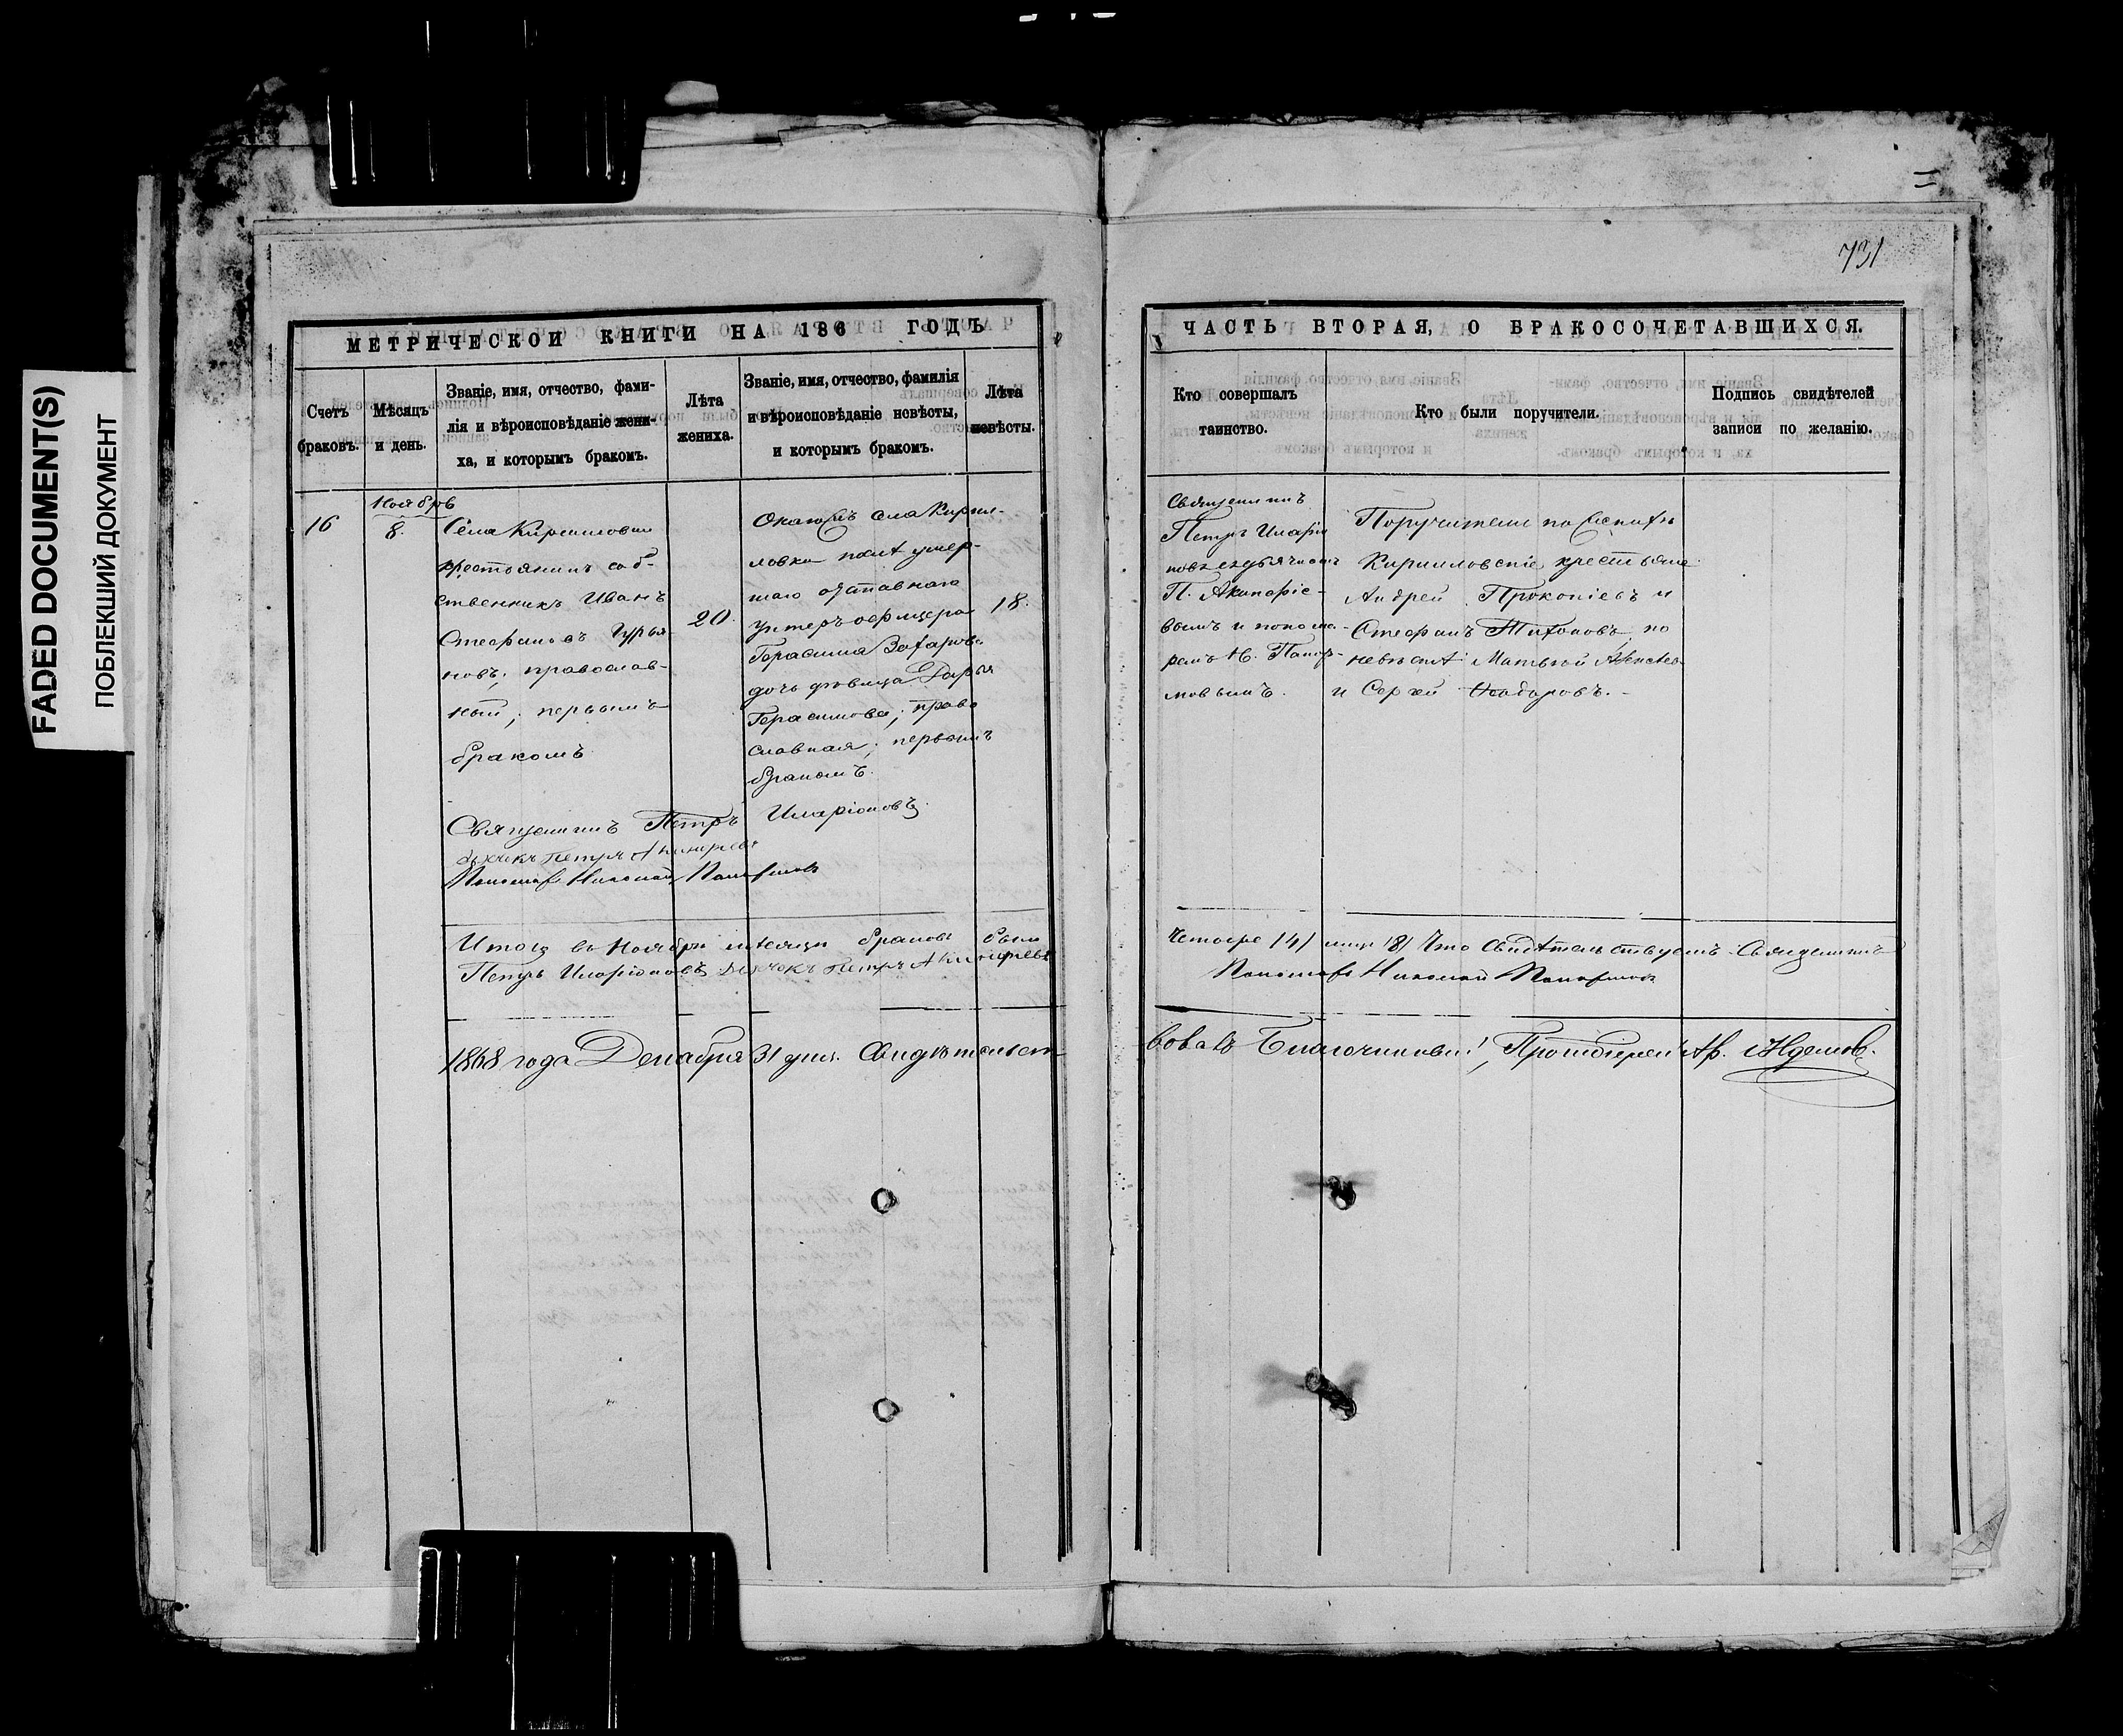 FADED DOCUMENT(S)
ПОБЛЕКШИЙ ДОКУМЕНТ
731
МЕТРИЧЕСКОЙ КНИГИ НА 186 ГОДЪ
Счетъ
браковъ.
Мѣсяцъ
и день.
Званіе, имя, отчество, фами-
лія и вѣроисповѣданіе жени-
ха, и которымъ бракомъ.
Лѣта
жениха.
Званіе, имя, отчество, фамилія
и вѣроисповѣданіе невѣсты,
и которымъ бракомъ.
Лѣта
невѣсты.
16
Ноябрь
8.
Села Кирилловки
крестьянинъ соб-
ственникъ Иванъ
Стефановъ Гурья-
новъ; православ-
ный; первымъ
бракомъ
20.
села Кирил-
ловки умер-
шаго отставнаго
унтеръ офицера
Герасима Захарова
дочь дѣвица Дарья
Герасимова; право
славная; первымъ
бракомъ.
18.
Священникъ Петръ Иларіоновъ
дьячекъ Петръ
Пономарь Николай
Итого въ Ноябрѣ мѣсяцѣ браковъ было
Петръ Иларіоновъ Дьячокъ Петръ
1868 года Декабря 31 дня. Свидѣтельст-
ЧАСТЬ ВТОРАЯ, О БРАКОСОЧЕТАВШИХСЯ.
Кто совершалъ
таинство.
Кто были поручители.
Подпись свидѣтелей
записи по желанію.
Священникъ
Петръ Иларіо
новъ съ дьячкомъ
П.
вымъ и понома-
ремъ Н.
Поручители по женихѣ
Кирилловскіе крестьяне
Андрей Прокопіевъ и
Стефанъ Тихоновъ по
невѣстѣ Матвѣй Алексѣев
и Сергей Ѳеодоровъ.-
Четыре /4/ Что свидѣтельствуемъ Священникъ
Пономарь Николай
вовалъ Благочинный, Протоіерей